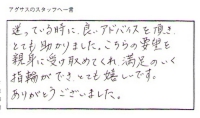 アグサスのスタッフへ一言
迷っている時に、良いアドバイスを頂き
とても助かりました。こちらの要望を
親身に受け取めてくれ満足のいく
指輪ができ、とても嬉しいです。
ありがとうございました。